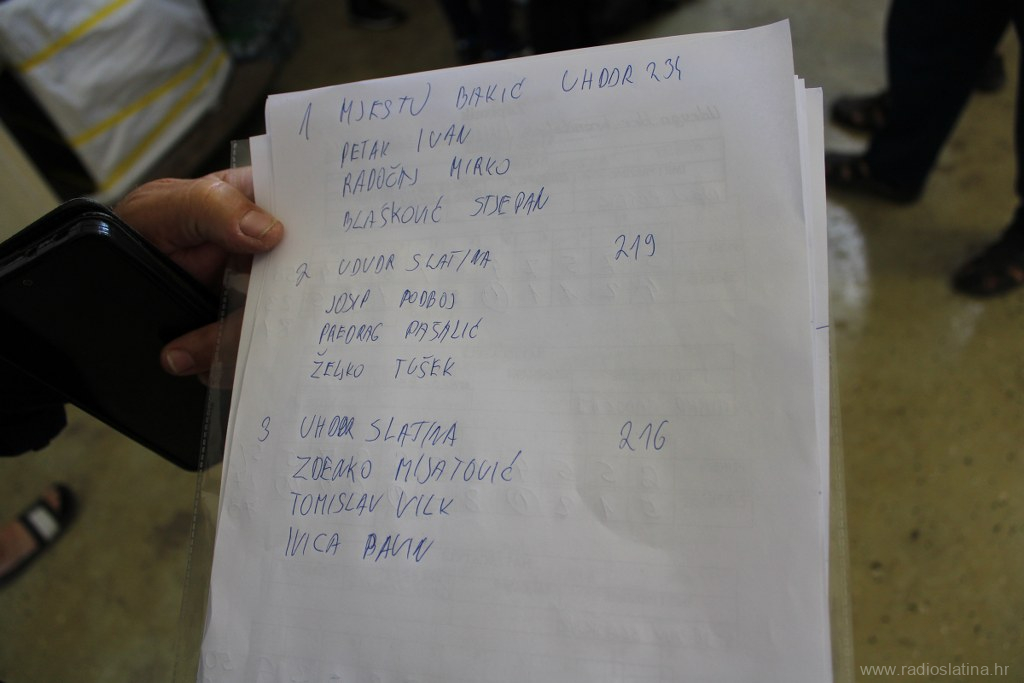 1 MJESTO BAKIĆ UHDDR 234
PETAK IVAN
RADOČAJ MIRKO
BLAŠKOVIĆ STJEPAN
2 UDVDR SLATINA 219
JOSIP PODBOJ
PREDRAG PAŠALIĆ
ŽELJKO TUŠEK
3 UHDDR SLATINA 216
ZDENKO MIJATOVIĆ
TOMISLAV VILK
IVICA BAVIN
www.radioslatina.hr